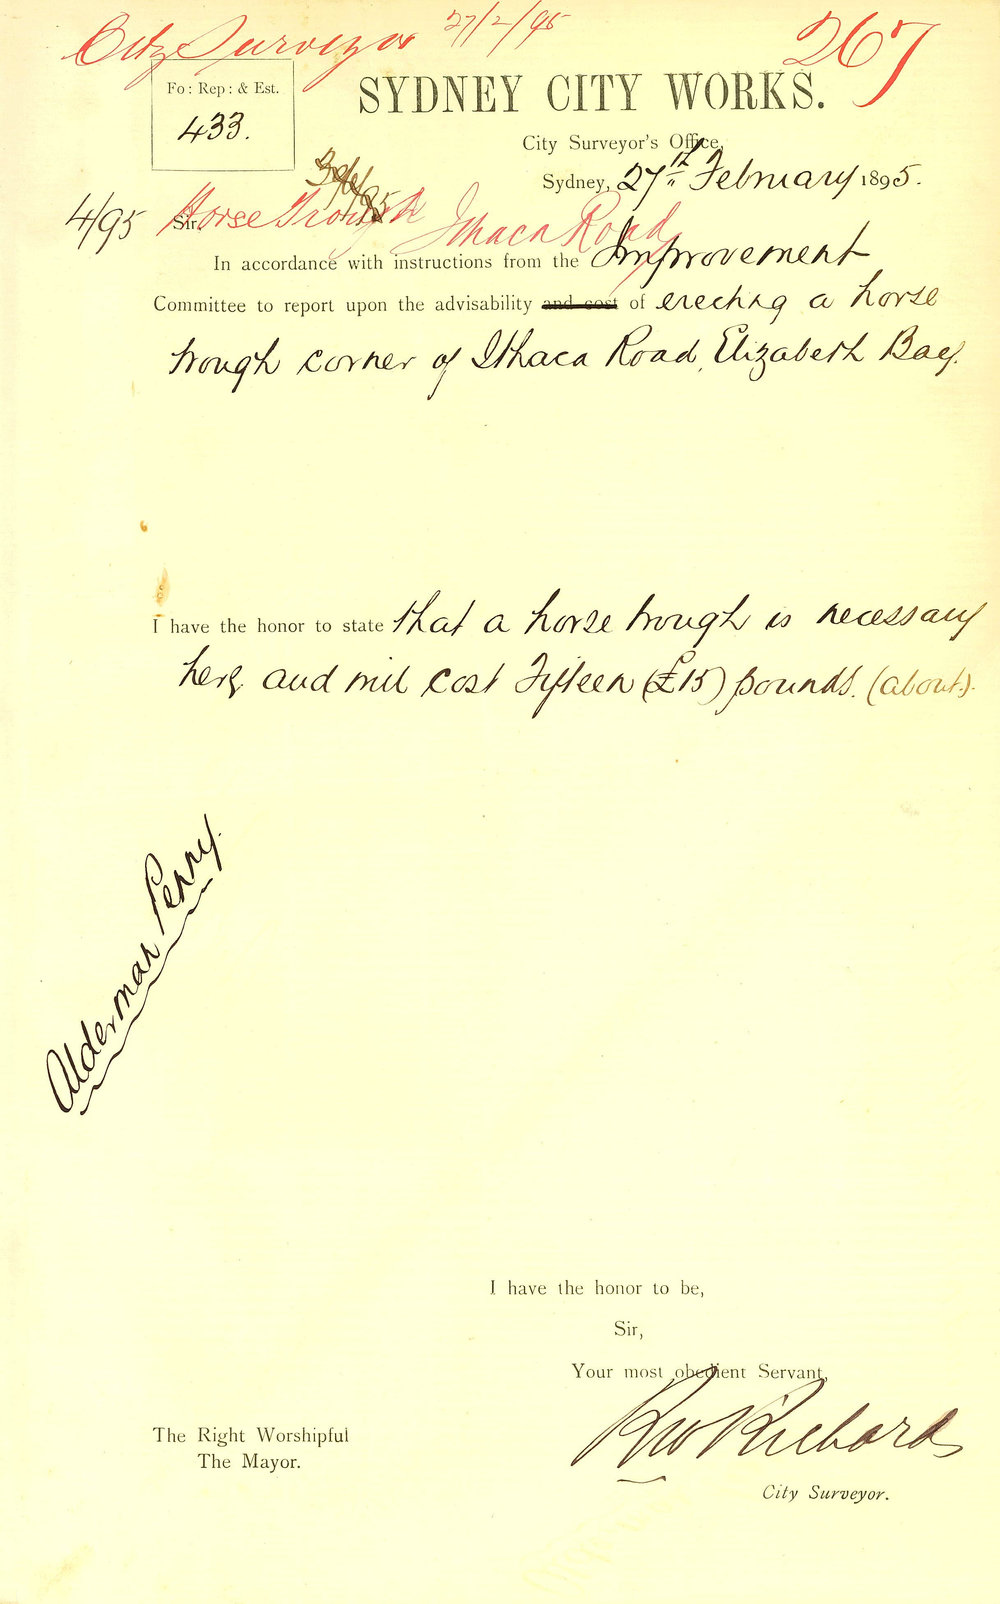 City Surveyor 27/2/95
267
Fo: Rep: & Est.
433.
SYDNEY CITY WORKS.
City Surveyor's Office,
Sydney, 27th February 1895.
4/95
Sir
Horse Trough Ithaca Road
In accordance with instructions from the Improvement
Committee to report upon the advisability and cost of erecting a horse
trough corner of Ithaca Road, Elizabeth Bay.
I have the honor to state that a horse trough is necessary
here and will cost Fifteen (£15) pounds. (about).
Alderman Penny.
I have the honor to be,
Sir,
Your most obedient Servant,
RW Richards
The Right Worshipful
The Mayor.
City Surveyor.